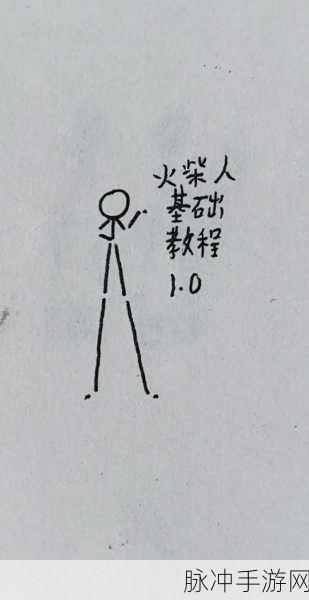 火柴人
基础
教程
1.0
脉冲手游网